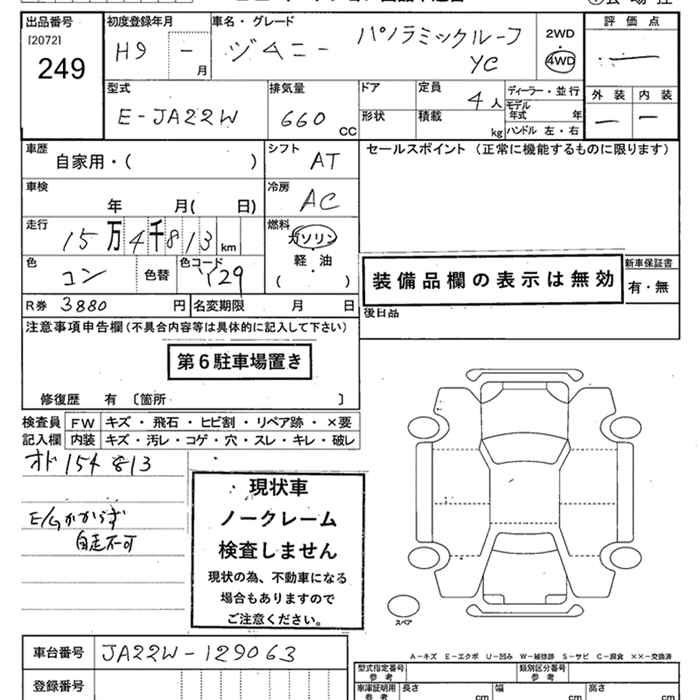 出品番号 初度登録年月 車名・グレード 評価点
[2072] H9 - 月 ジムニー パノラミックルーフ 2WD
249 YC 4WD
型式 排気量 ドア 定員 ディーラー・並行 外装 内装
E-JA22W 660 CC 4人 モデル年式 年
形状 積載 kg ハンドル 左・右
車歴 シフト セールスポイント (正常に機能するものに限ります)
自家用・( ) AT
車検 冷房
年 月( 日) AC
走行 燃料
15万4千813 km ガソリン
軽・油
( )
色 色替 色コード 新車保証書
コン 129 装備品欄の表示は無効 有・無
R券 3880 円 名変期限 月 日 後日品
注意事項申告欄(不具合内容等は具体的に記入して下さい)
第6駐車場置き
修復歴 有 〔箇所 〕
検査員 FW キズ・飛石・ヒビ割・リペア跡・×要
記入欄 内装 キズ・汚レ・コゲ・穴・スレ・キレ・破レ
オド154813
現状車
E/Gかからず ノークレーム
自走不可 検査しません
現状の為、不動車になる
場合もありますので
ご注意ください。
スペア
A-キズ E-エクボ U-凹み W-補修跡 S-サビ C-腐食 ××-交換済
車台番号 JA22W-129063
型式指定番号 参考 類別区分番号 参考
登録番号 車庫証明用 参考 長さ cm 幅 cm 高さ cm